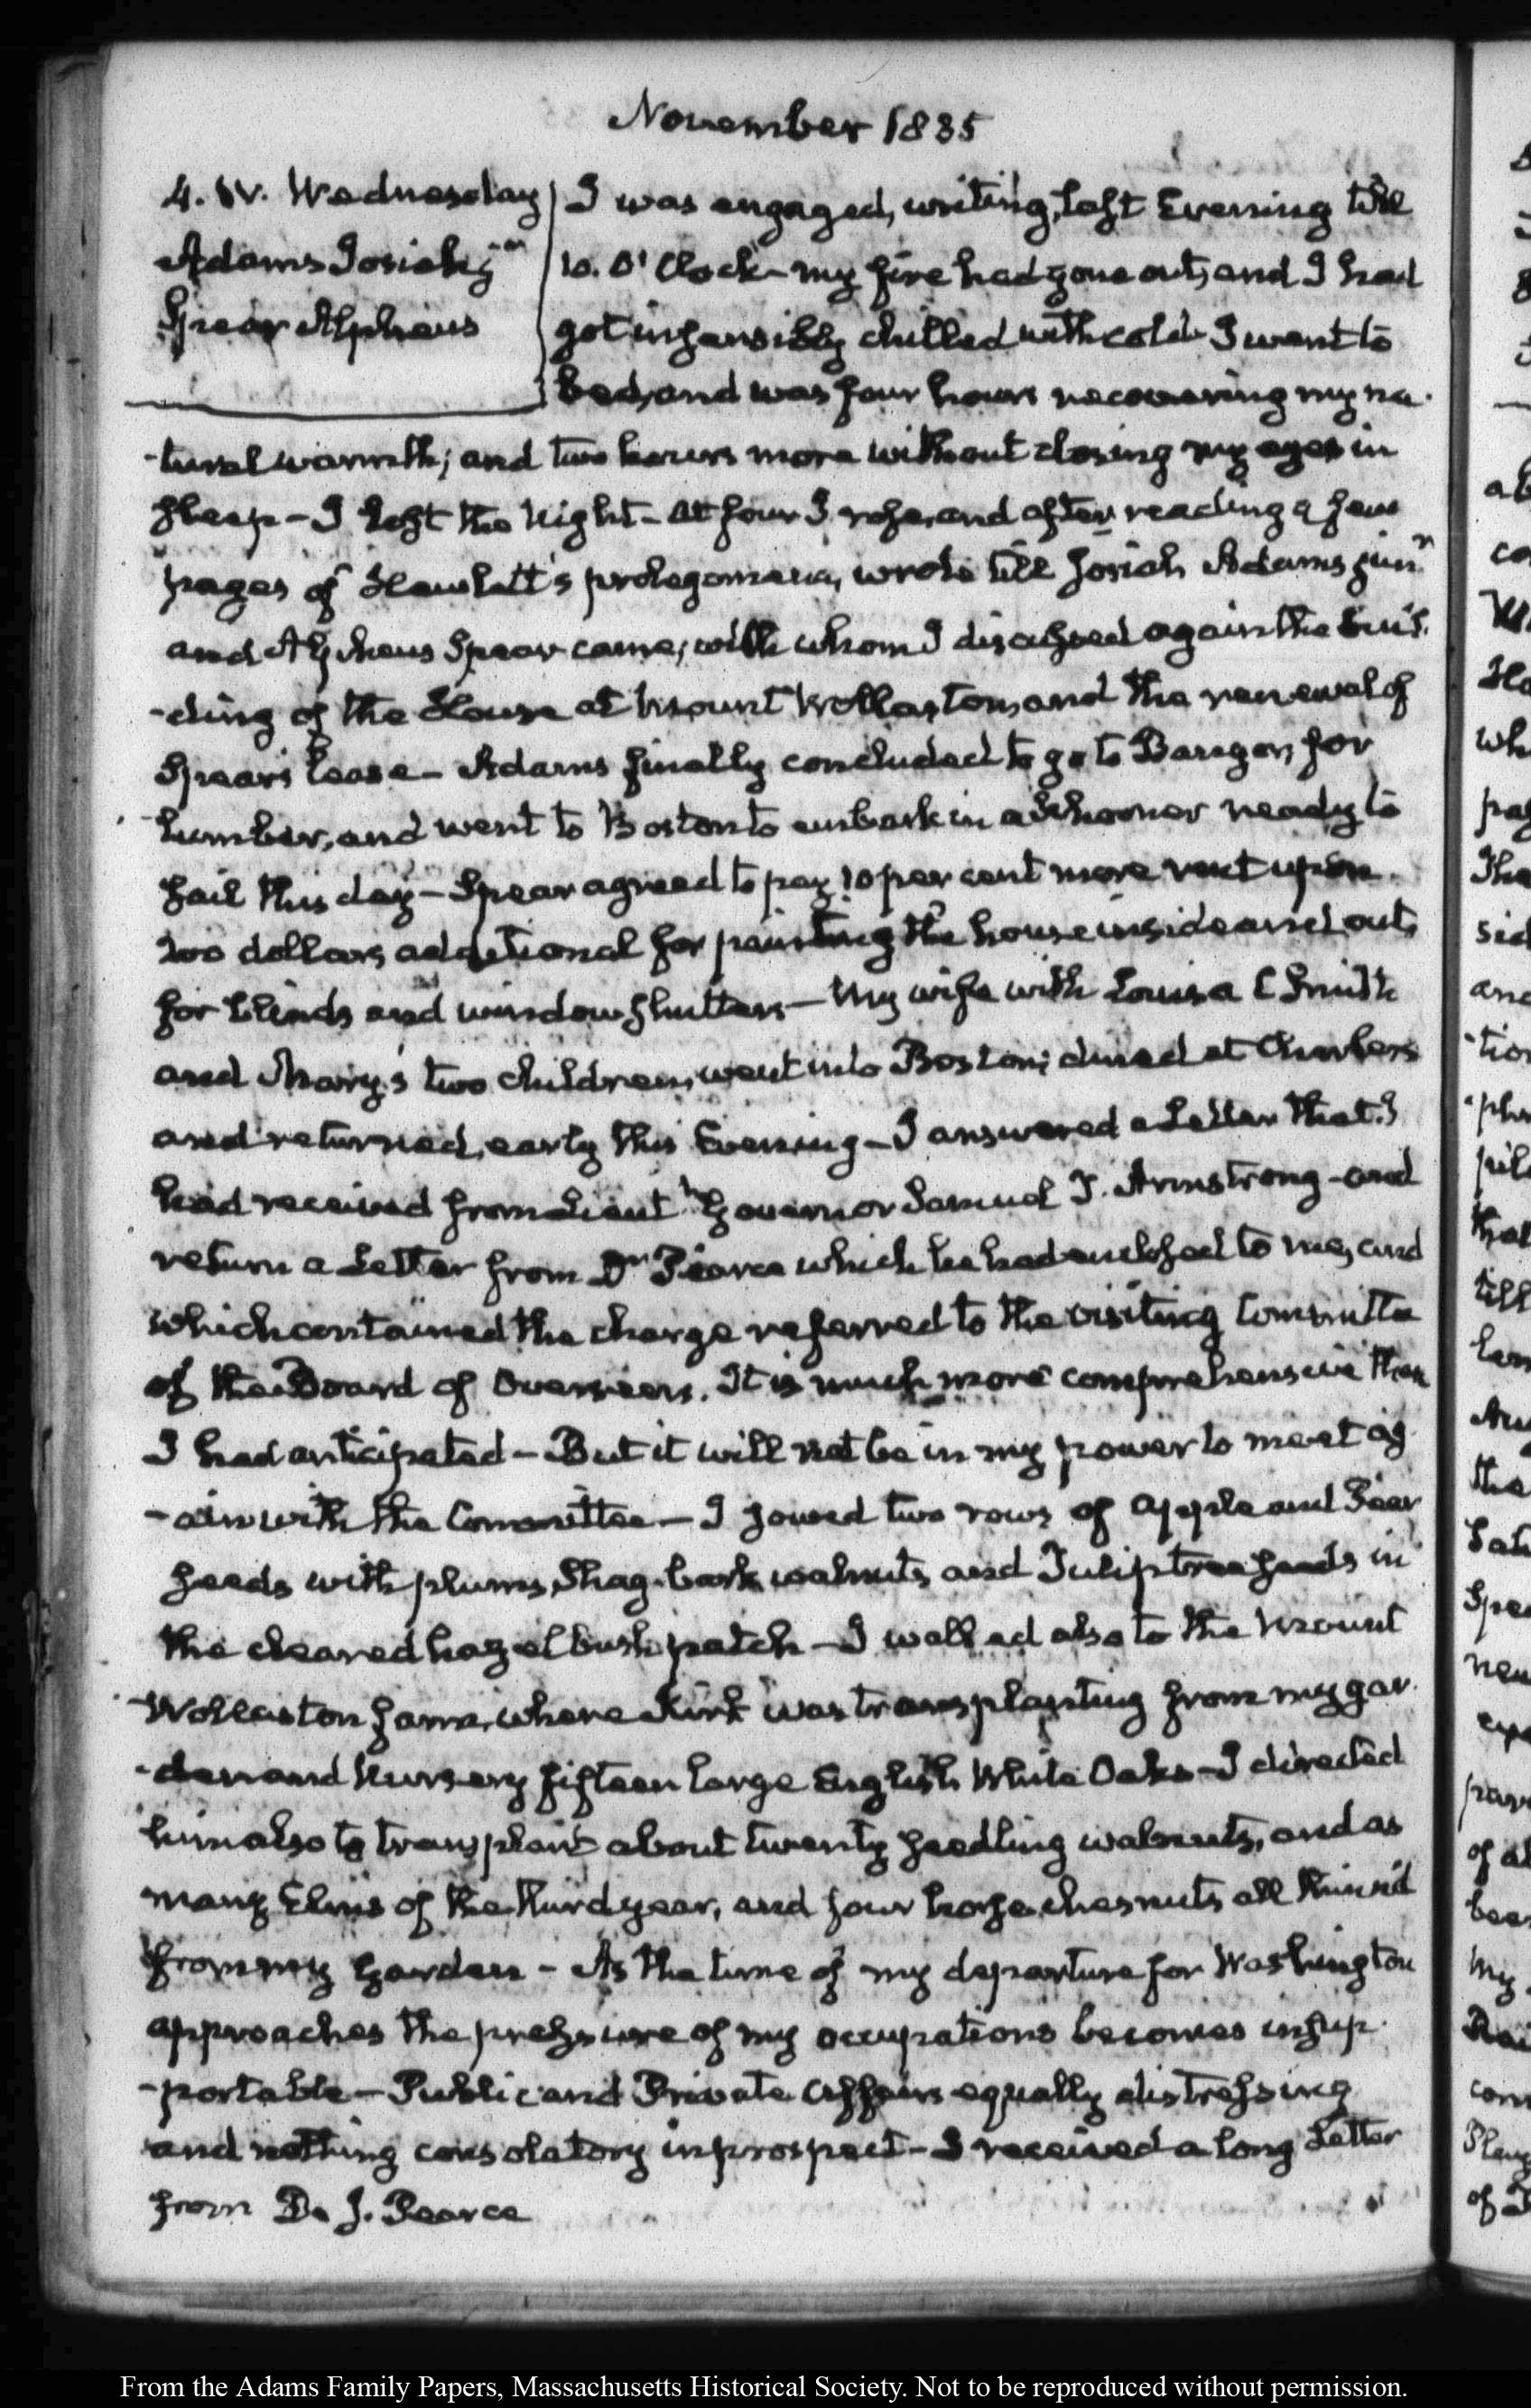 November 1835
4. IV. Wednesday
Adams Josiah jr.
Spear Alpheus
I was engaged, writing, last Evening till
10. O'Clock - my fire had gone out, and I had
got insensibly chilled with cold. I went to
bed, and was four hours recovering my na-
-tural warmth; and two hours more without closing my eyes in
sleep - I lost the Night - At four I rose, and after reading a few
pages of Hewlett's prolegomena, wrote till Josiah Adams junr.
and Alpheus Spear came; with whom I discussed again the buil-
-ding of the House at Mount Wollaston, and the renewal of
Spear's lease - Adams finally concluded to go to Bangor, for
lumber, and went to Boston to embark in a Schooner ready to
sail this day - Spear agreed to pay 10 per cent more rent upon
200 dollars additional for painting the house inside and out,
for blinds and window shutters - My wife with Louisa C Smith
and Mary's two children, went into Boston; dined at Charles's
and returned, early this Evening - I answered a Letter that I
had received from Lieut. Governor Samuel T. Armstrong - and
return a Letter from Dr Pearce which he had enclosed to me, and
which contained the charge referred to the visiting Committee
of the Board of Overseers. It is much more comprehensive than
I had anticipated - But it will not be in my power to meet ag-
-ain with the Committee - I sowed two rows of apple and Pear
seeds with plums, Shag-bark walnuts, and Tulip tree seeds in
the cleared hazel bush patch - I walked also to the Mount
Wollaston farm, where Kirk was transplanting from my gar-
-den and Nursery fifteen large English White Oaks - I directed
him also to transplant about twenty seedling walnuts, and as
many Elms of the third year, and four horse chesnuts all thinn'd
from my Garden - As the time of my departure for Washington
approaches the pressure of my occupations becomes insup-
-portable - Public and Private Affairs equally distressing
and nothing consolatory in prospect - I received a long Letter
from D. J. Pearce
From the Adams Family Papers, Massachusetts Historical Society. Not to be reproduced without permission.